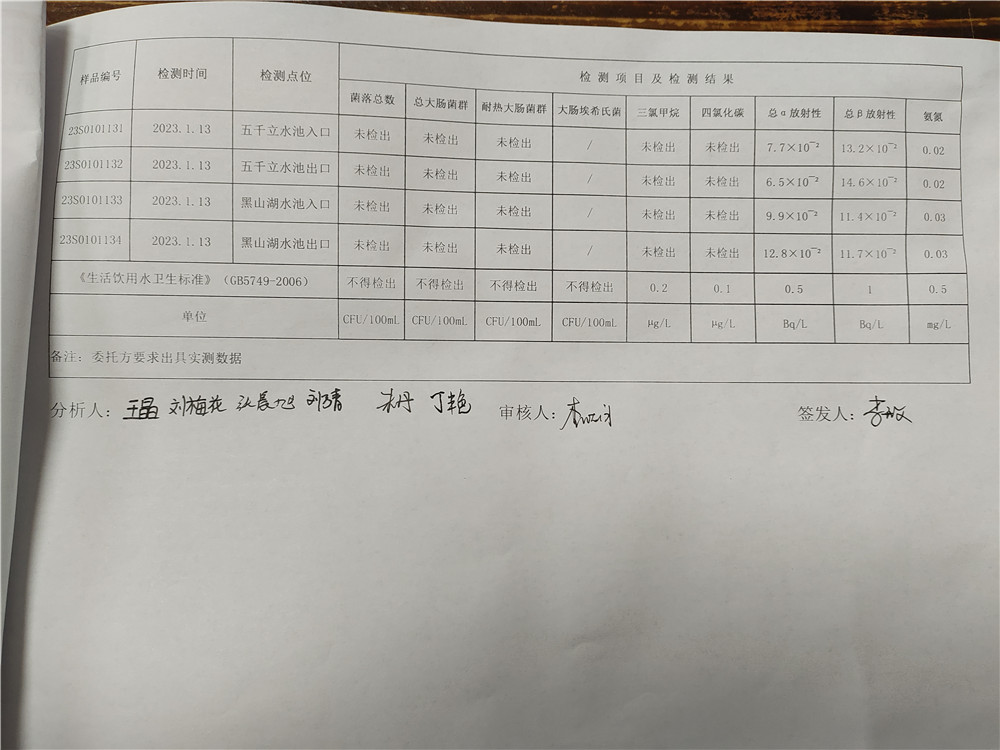 样品编号 检测时间 检测点位 检测项目及检测结果
菌落总数 总大肠菌群 耐热大肠菌群 大肠埃希氏菌 三氯甲烷 四氯化碳 总α放射性 总β放射性 氨氮
23S0101131 2023.1.13 五千立水池入口 未检出 未检出 未检出 / 未检出 未检出 7.7×10⁻² 13.2×10⁻² 0.02
23S0101132 2023.1.13 五千立水池出口 未检出 未检出 未检出 / 未检出 未检出 6.5×10⁻² 14.6×10⁻² 0.02
23S0101133 2023.1.13 黑山湖水池入口 未检出 未检出 未检出 / 未检出 未检出 9.9×10⁻² 11.4×10⁻² 0.03
23S0101134 2023.1.13 黑山湖水池出口 未检出 未检出 未检出 / 未检出 未检出 12.8×10⁻² 11.7×10⁻² 0.03
《生活饮用水卫生标准》(GB5749-2006) 不得检出 不得检出 不得检出 不得检出 0.2 0.1 0.5 1 0.5
单位 CFU/100mL CFU/100mL CFU/100mL CFU/100mL μg/L μg/L Bq/L Bq/L mg/L
备注：委托方要求出具实测数据
分析人：王晶 刘梅花 张晨旭 刘清 朱丹 丁艳 审核人： 签发人：李敏